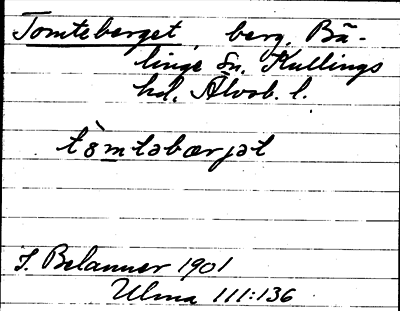 Tomteberget, berg, Bä-
linge Sn, Kullings
hd, Älvsb. l.
tömtabærjat
J. Belanner 1901
Ulma 111:136